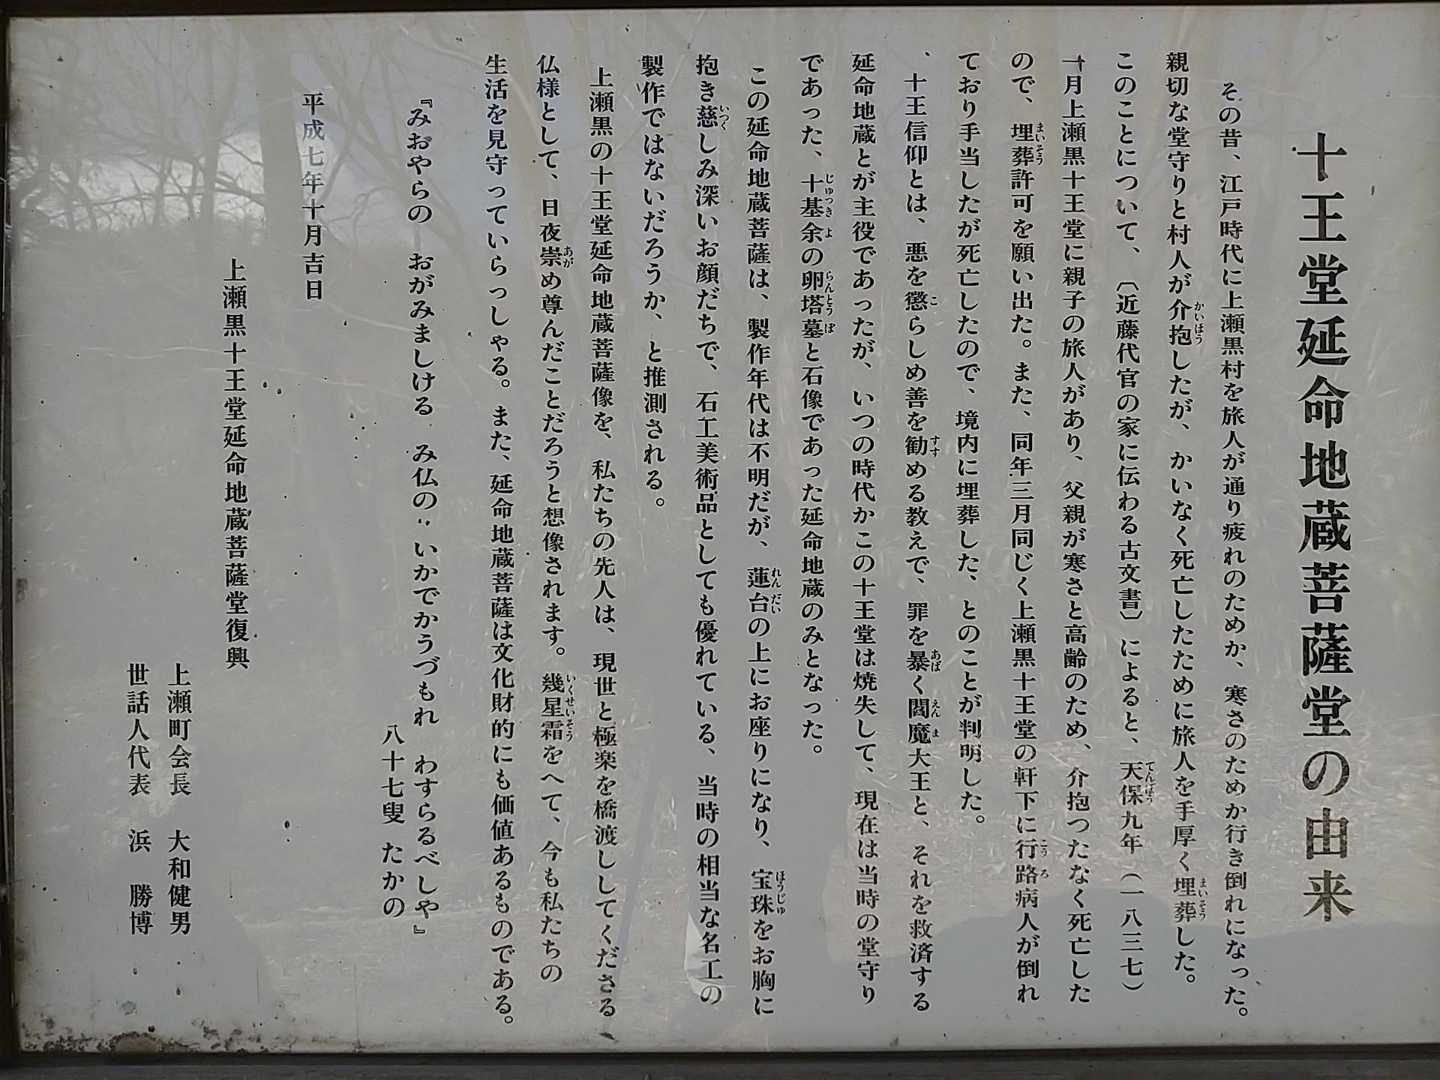 十王堂延命地蔵菩薩堂の由来
その昔、江戸時代に上瀬黒村を旅人が通り疲れのためか、寒さのためか行き倒れになった。
親切な堂守りと村人が介抱したが、かいなく死亡したために旅人を手厚く埋葬した。
このことについて、〔近藤代官の家に伝わる古文書〕によると、天保九年（一八三七）
十月上瀬黒十王堂に親子の旅人があり、父親が寒さと高齢のため、介抱つたなく死亡した
ので、埋葬許可を願い出た。また、同年三月同じく上瀬黒十王堂の軒下に行路病人が倒れ
ており手当したが死亡したので、境内に埋葬した、とのことが判明した。
、十王信仰とは、悪を懲らしめ善を勧める教えで、罪を暴く閻魔大王と、それを救済する
延命地蔵とが主役であったが、いつの時代かこの十王堂は焼失して、現在は当時の堂守り
であった、十基余の卵塔墓と石像であった延命地蔵のみとなった。
この延命地蔵菩薩は、製作年代は不明だが、蓮台の上にお座りになり、宝珠をお胸に
抱き慈しみ深いお顔だちで、石工美術品としても優れている、当時の相当な名工の
製作ではないだろうか、と推測される。
上瀬黒の十王堂延命地蔵菩薩像を、私たちの先人は、現世と極楽を橋渡ししてくださる
仏様として、日夜崇め尊んだことだろうと想像されます。幾星霜をへて、今も私たちの
生活を見守っていらっしゃる。また、延命地蔵菩薩は文化財的にも価値あるものである。
『みおやらの おがみましける み仏の いかでかうづもれ わすらるべしや』
八十七叟 たかの
平成七年十月吉日
上瀬黒十王堂延命地蔵菩薩堂復興
上瀬町会長 大和健男
世話人代表 浜 勝博